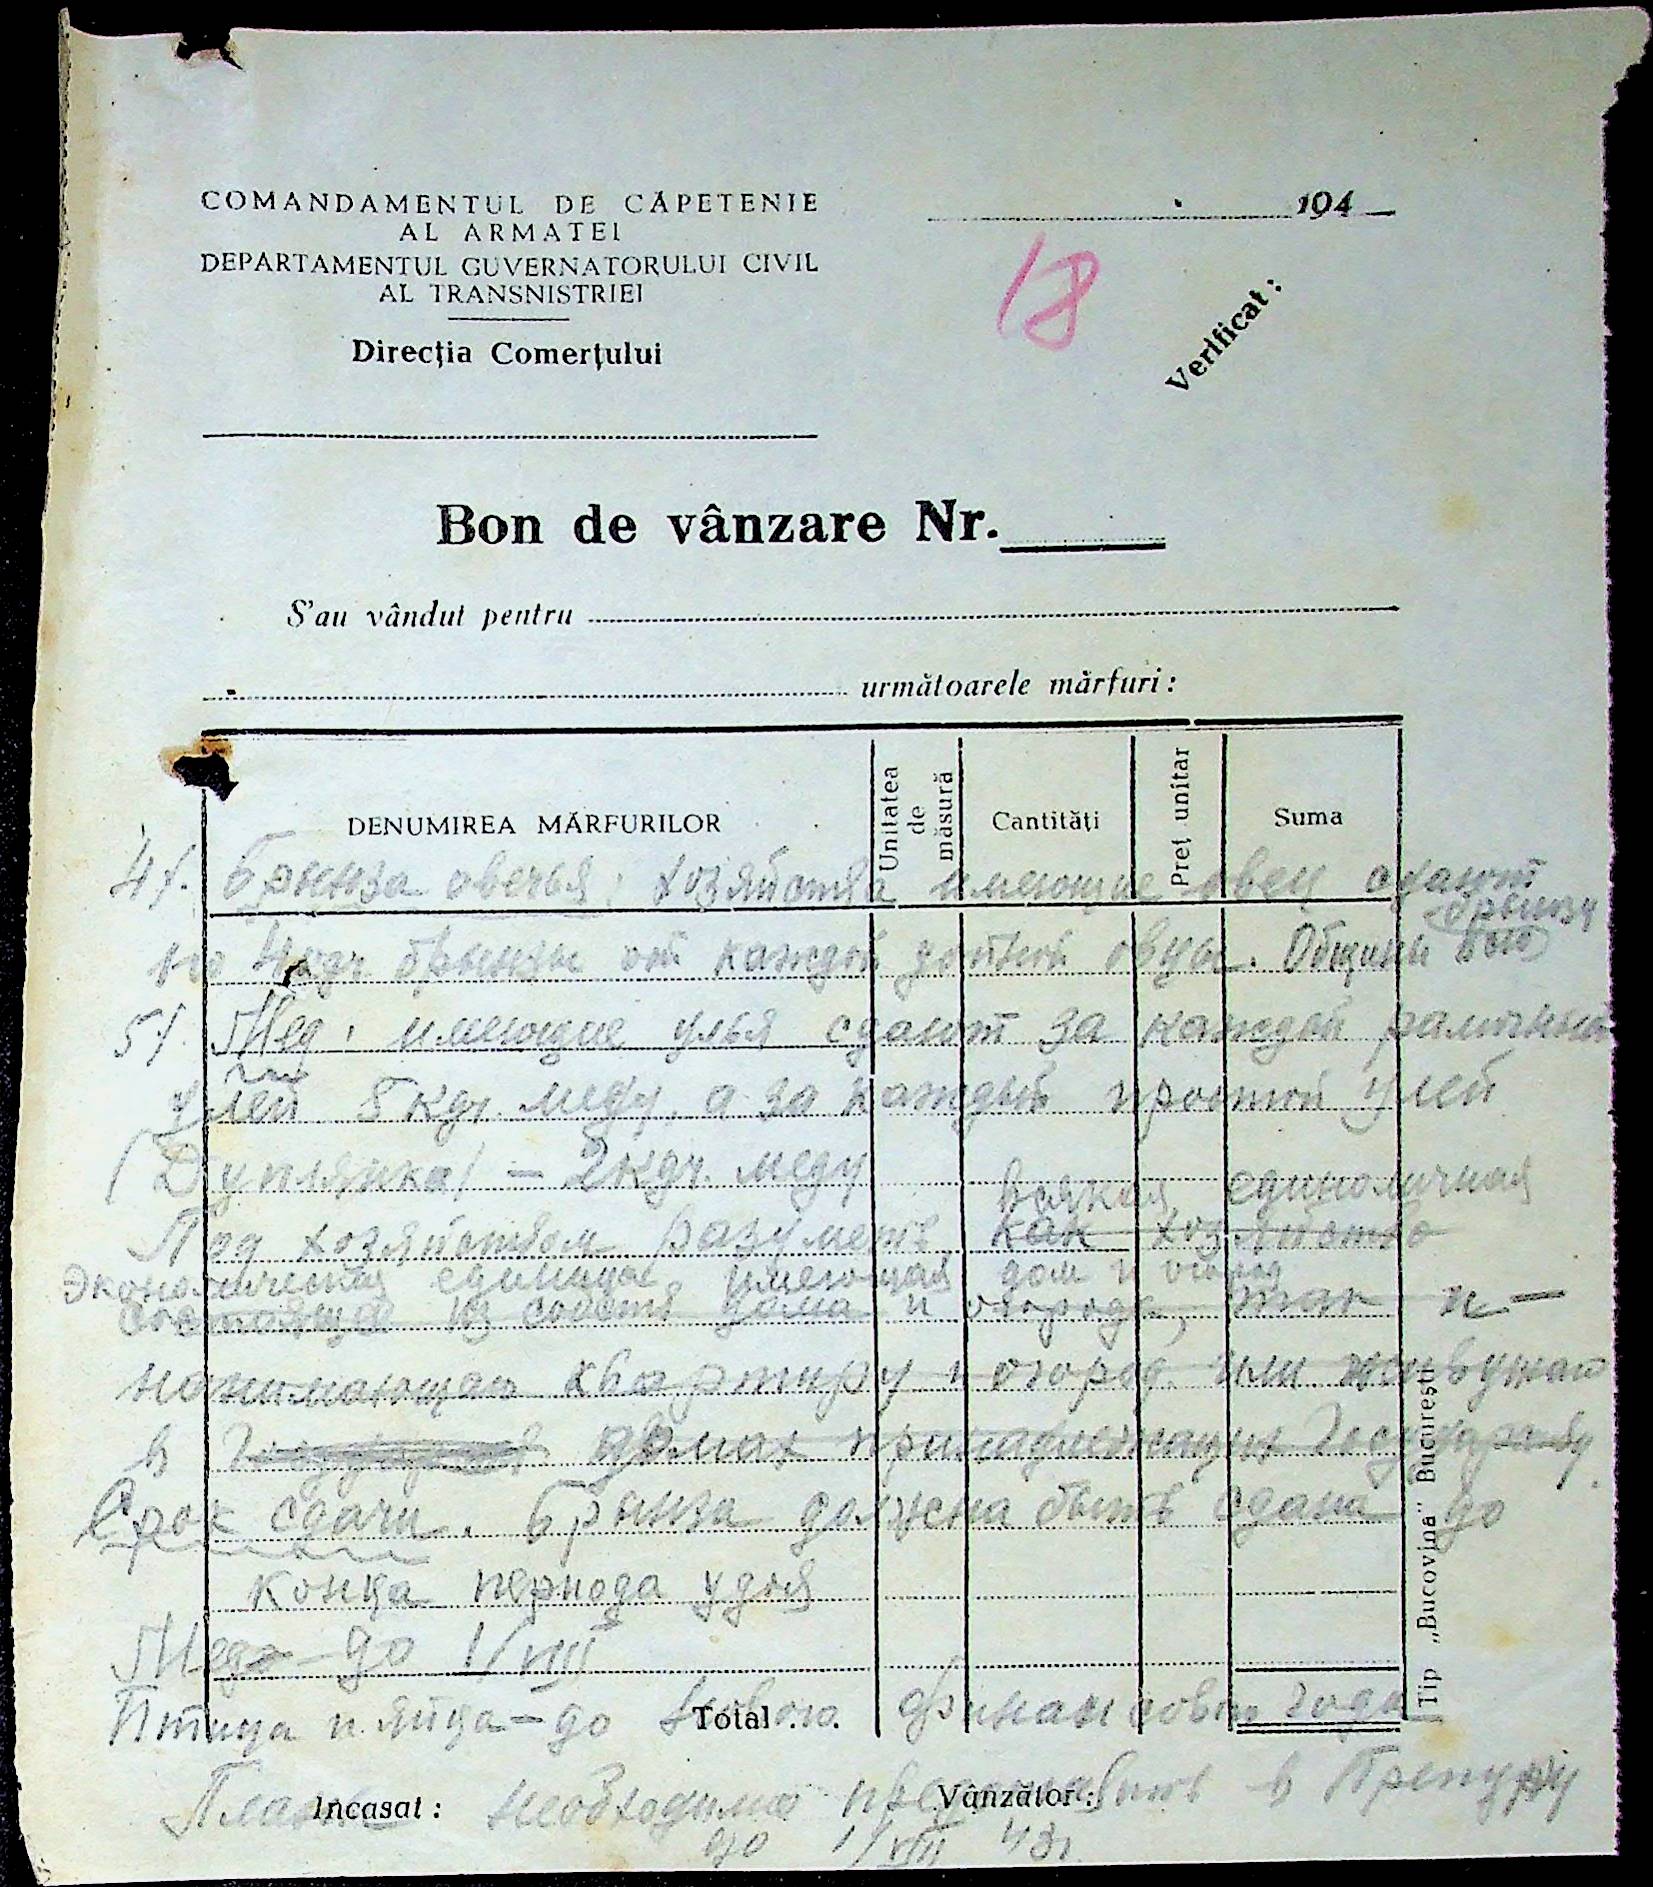 COMANDAMENTUL DE CĂPETENIE
AL ARMATEI
DEPARTAMENTUL GUVERNATORULUI CIVIL
AL TRANSNISTRIEI
Direcţia Comerţului
194
18
Verificat:
Bon de vânzare Nr.
S'au vândut pentru
următoarele mărfuri:
DENUMIREA MĂRFURILOR
Unitatea de măsură
Cantităţi
Preţ unitar
Suma
4/. Брынза овечья, хозяйства имеющие овец сдают
брынзу
по 4 кгр брынзы от каждой дойной овцы. Общины
5/. Мед, имеющие улья сдают за каждый рамочный
улей 5 кгр. меду, а за каждый простой улей
(Дуплянка) – 2 кгр. меду
всякая единоличная
Под хозяйством разуметь как хозяйство
экономическая единица, имеющая дом и огород
состоящее из собств дома и огорода, так и –
нанимающая квартиру и огород или живущая
в домах принадлежащих Государству.
Срок сдачи. Брынза должна быть сдана до
конца периода удоя
Мед – до 1/VIII
Птица и яйца – до нового финансового года
Total . . .
План необходимо представить в Претуру
Incasat:
Vânzător:
до 1/VIII 43г.
Tip „Bucovina" Bucureşti